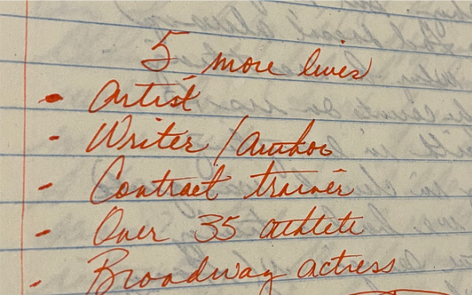 5 more lives
- Artist
- Writer / Author
- Contract trainer
- Over 35 athlete
- Broadway actress